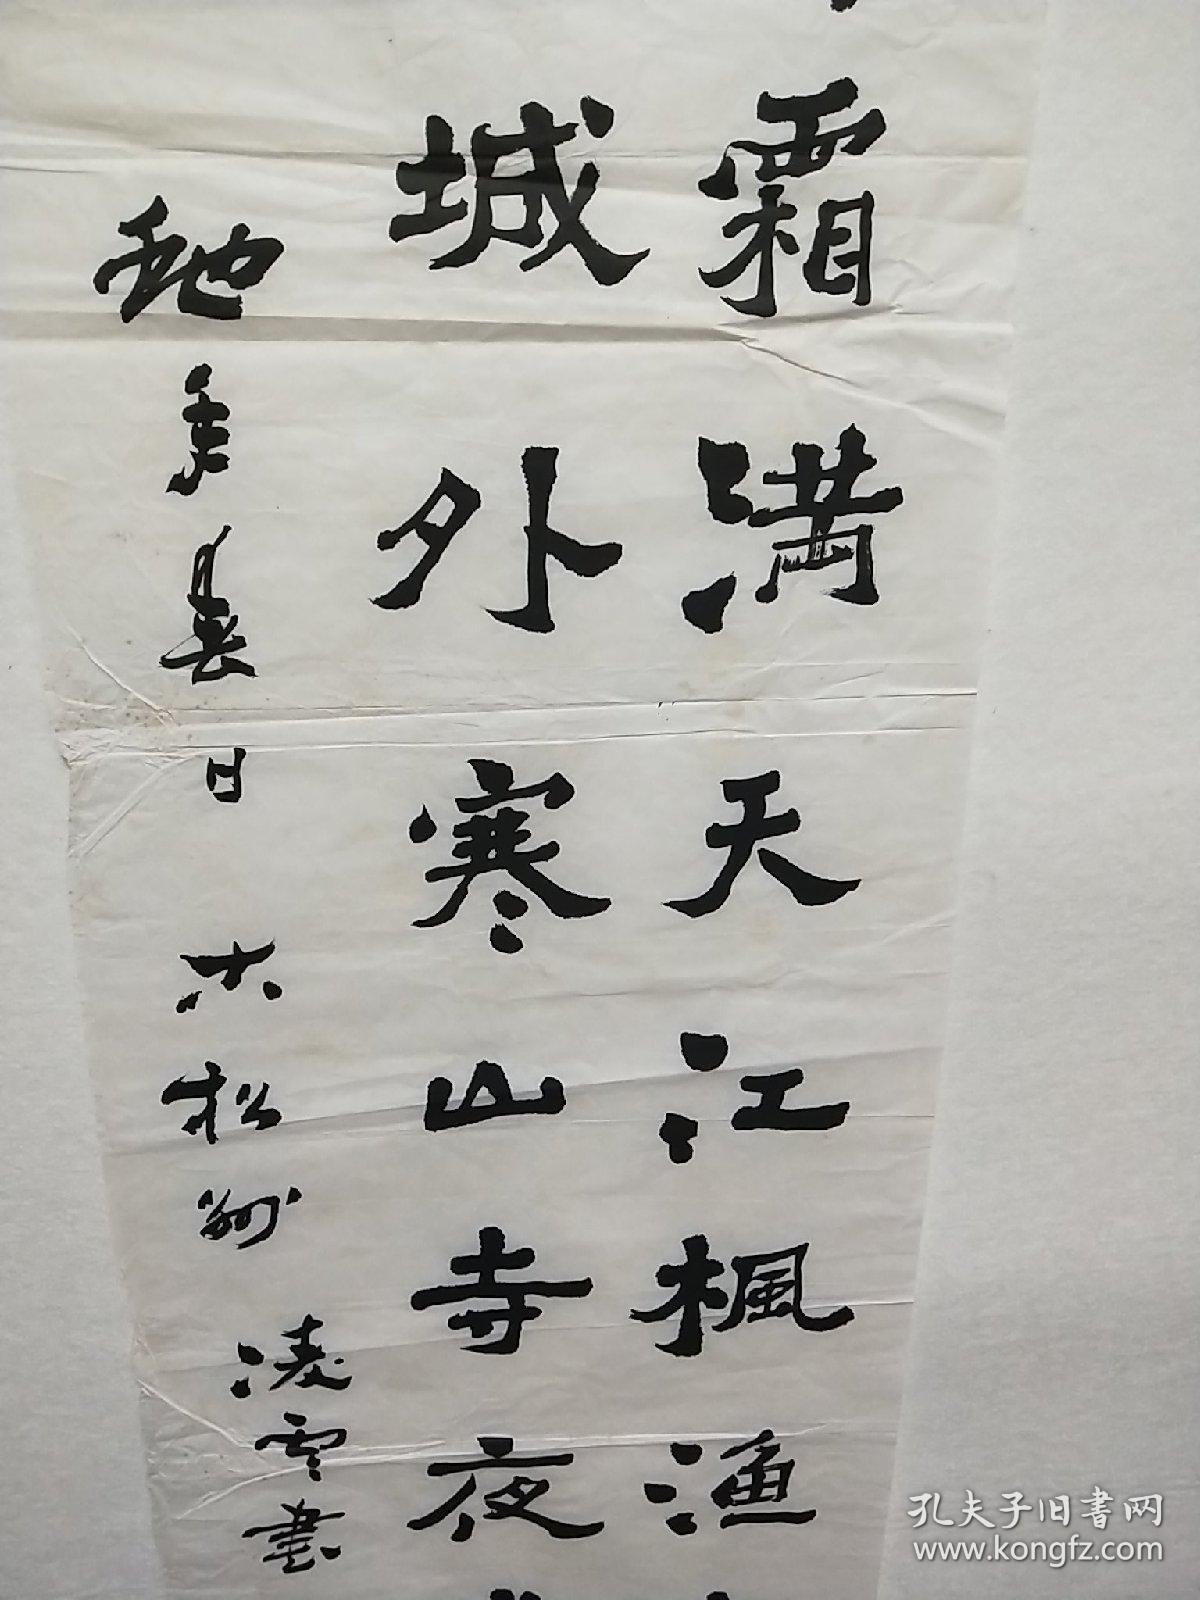 霜满天江楓渔
城外寒山寺夜
春日松州
凌雲書
孔夫子旧书网
www.kongfz.com